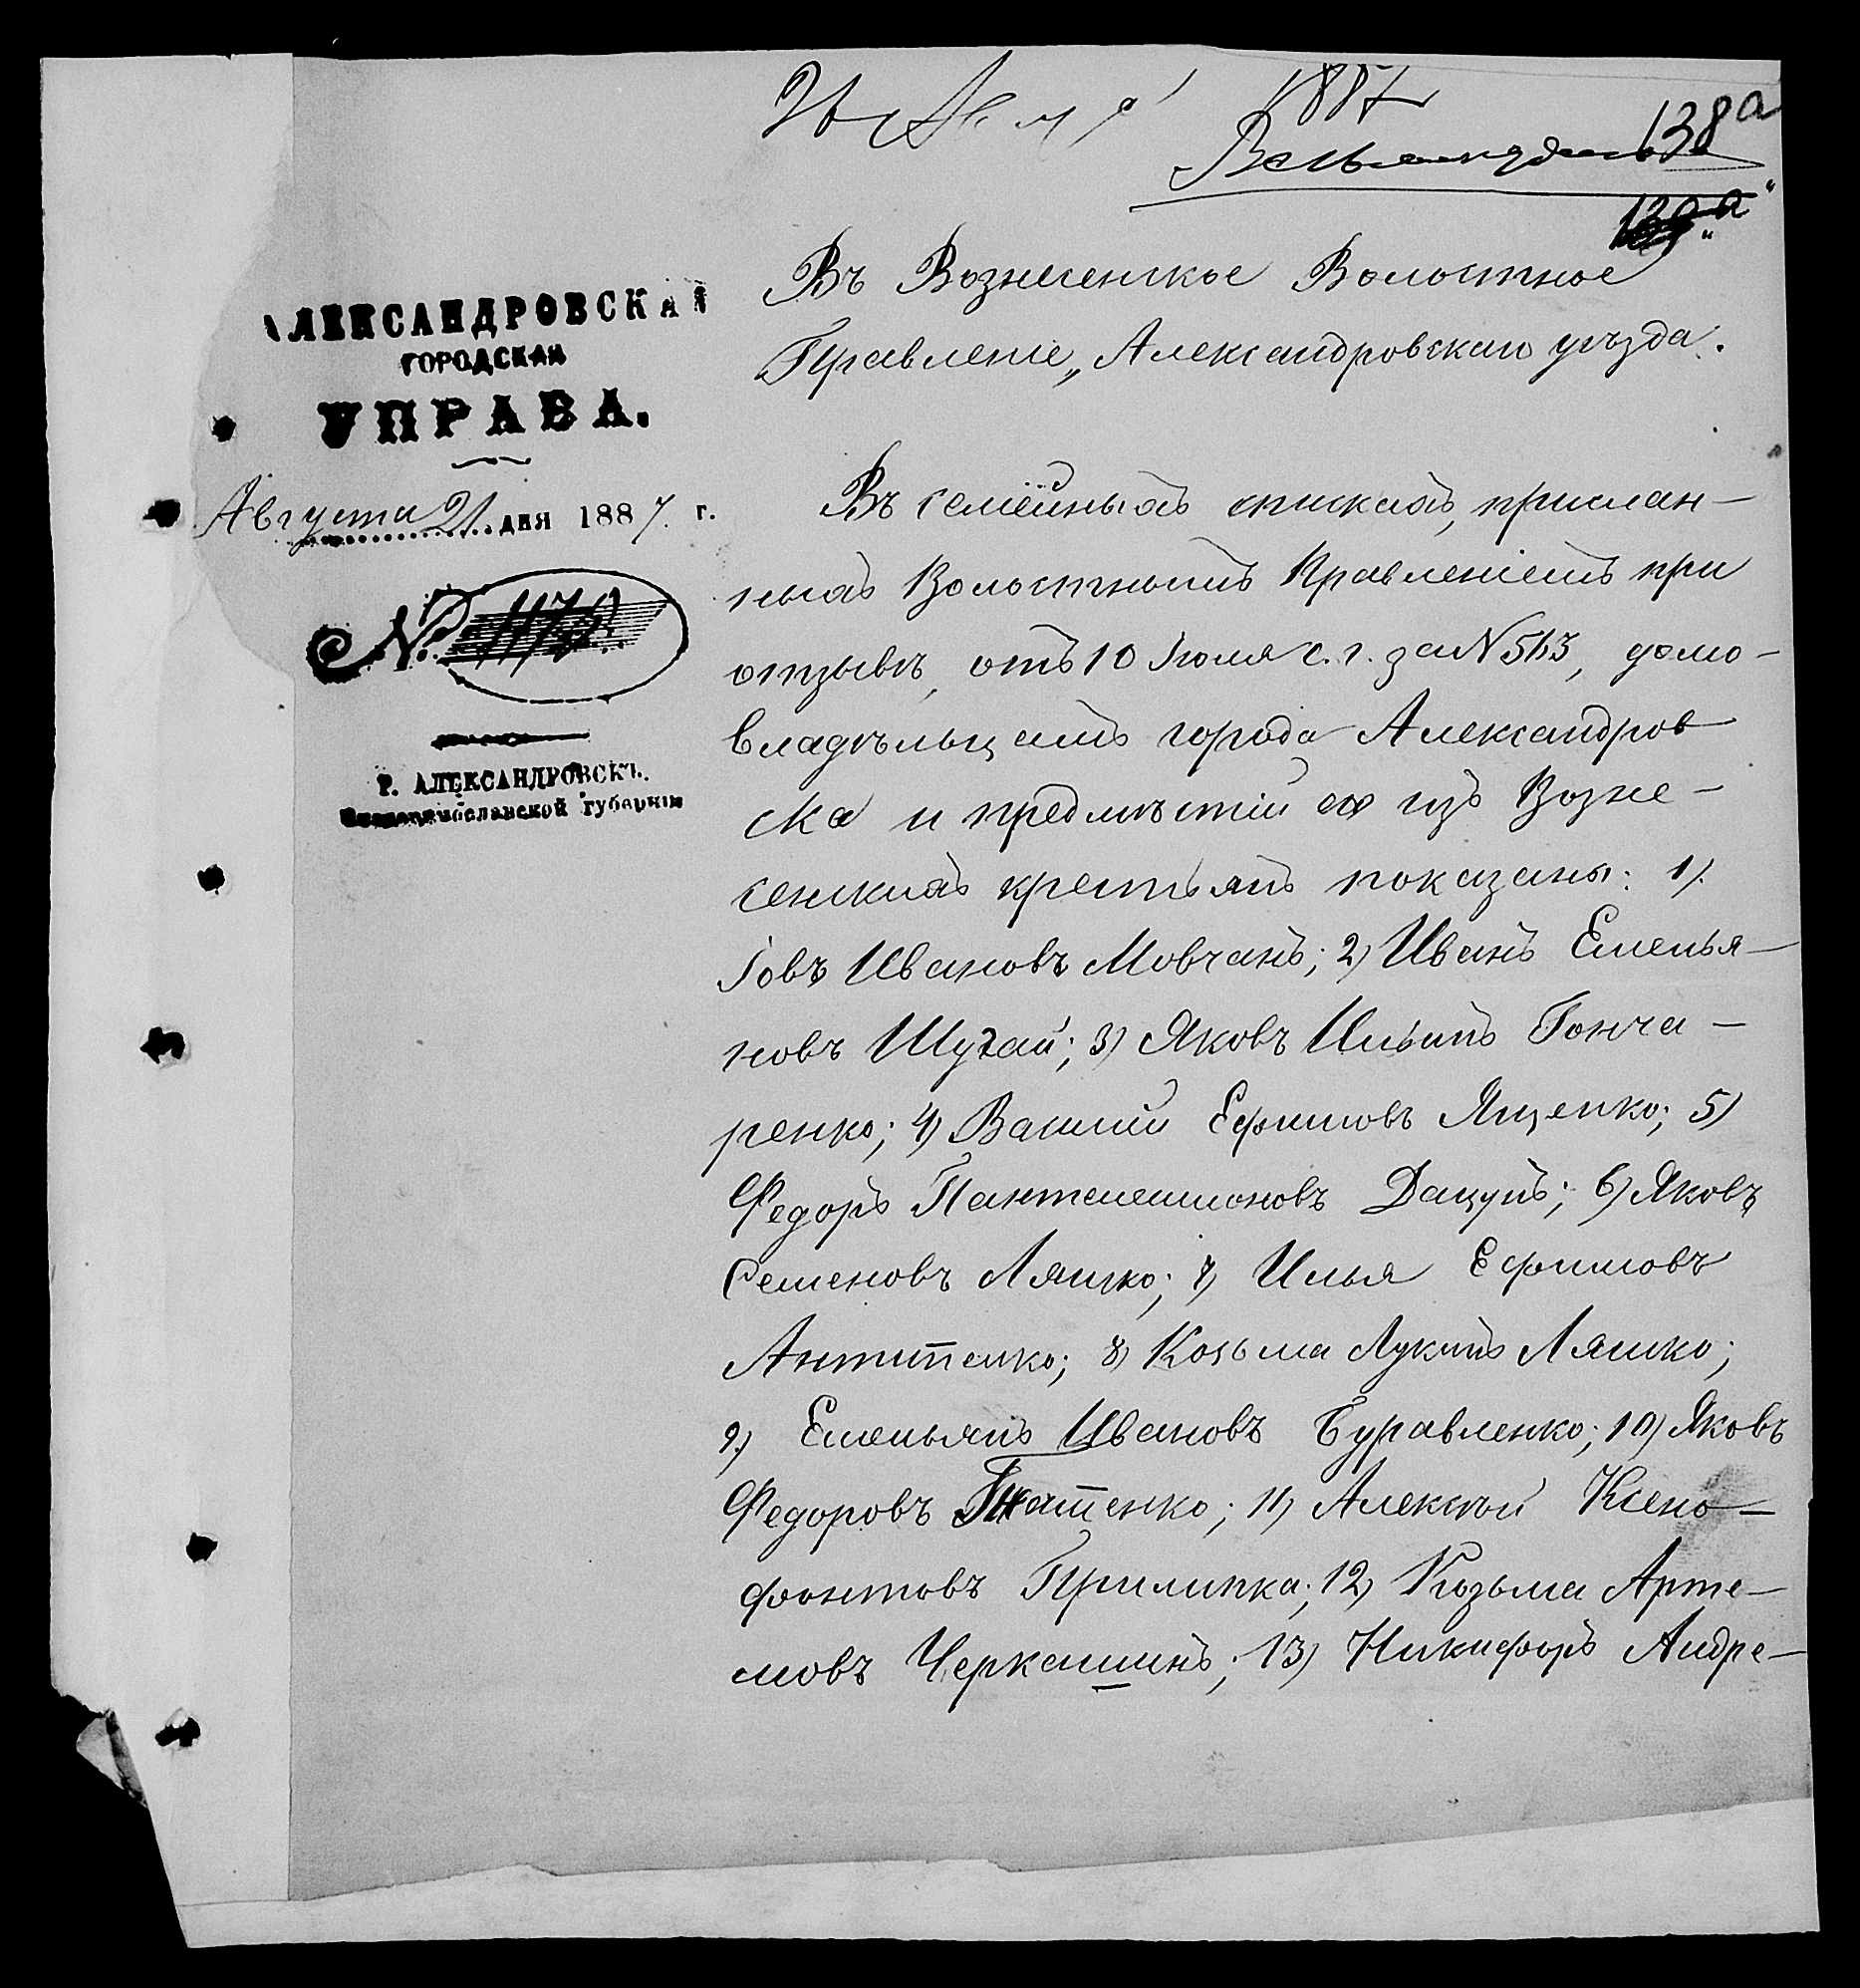 26 Авг 1887
138а
139а
Въ Вознесенское Волостное
Правленіе, Александровскаго уѣзда.
АЛЕКСАНДРОВСКАЯ
ГОРОДСКАЯ
УПРАВА.
Августа 21 дня 1887 г.
№ 1170
Г. АЛЕКСАНДРОВСКЪ.
Екатеринославской губерніи
Въ семейныхъ спискахъ, прислан-
ныхъ Волостнымъ Правленіемъ при
отзывѣ, отъ 10 Іюля с. г. за № 513, домо-
владѣльцамъ города Александров
ска и предмѣстій его изъ Возне-
сенскихъ крестьянъ показаны: 1).
Іовъ Ивановъ Мовчанъ; 2) Иванъ Емелья-
новъ Шугай; 3) Яковъ Ильинъ Гонча-
ренко; 4) Василій Ефимовъ Яценко; 5)
Федоръ Пантелеимоновъ Дацунъ; 6) Яковъ
Семеновъ Ляшко; 7) Илья Ефимовъ
Антипенко; 8) Козьма Лукинъ Ляшко;
9) Емельянъ Ивановъ Буравленко; 10) Яковъ
Федоровъ Игнатенко; 11) Алексѣй Ксено-
фонтовъ Прилипка; 12) Козьма Арте-
мовъ Черкашинъ; 13) Никифоръ Андре-